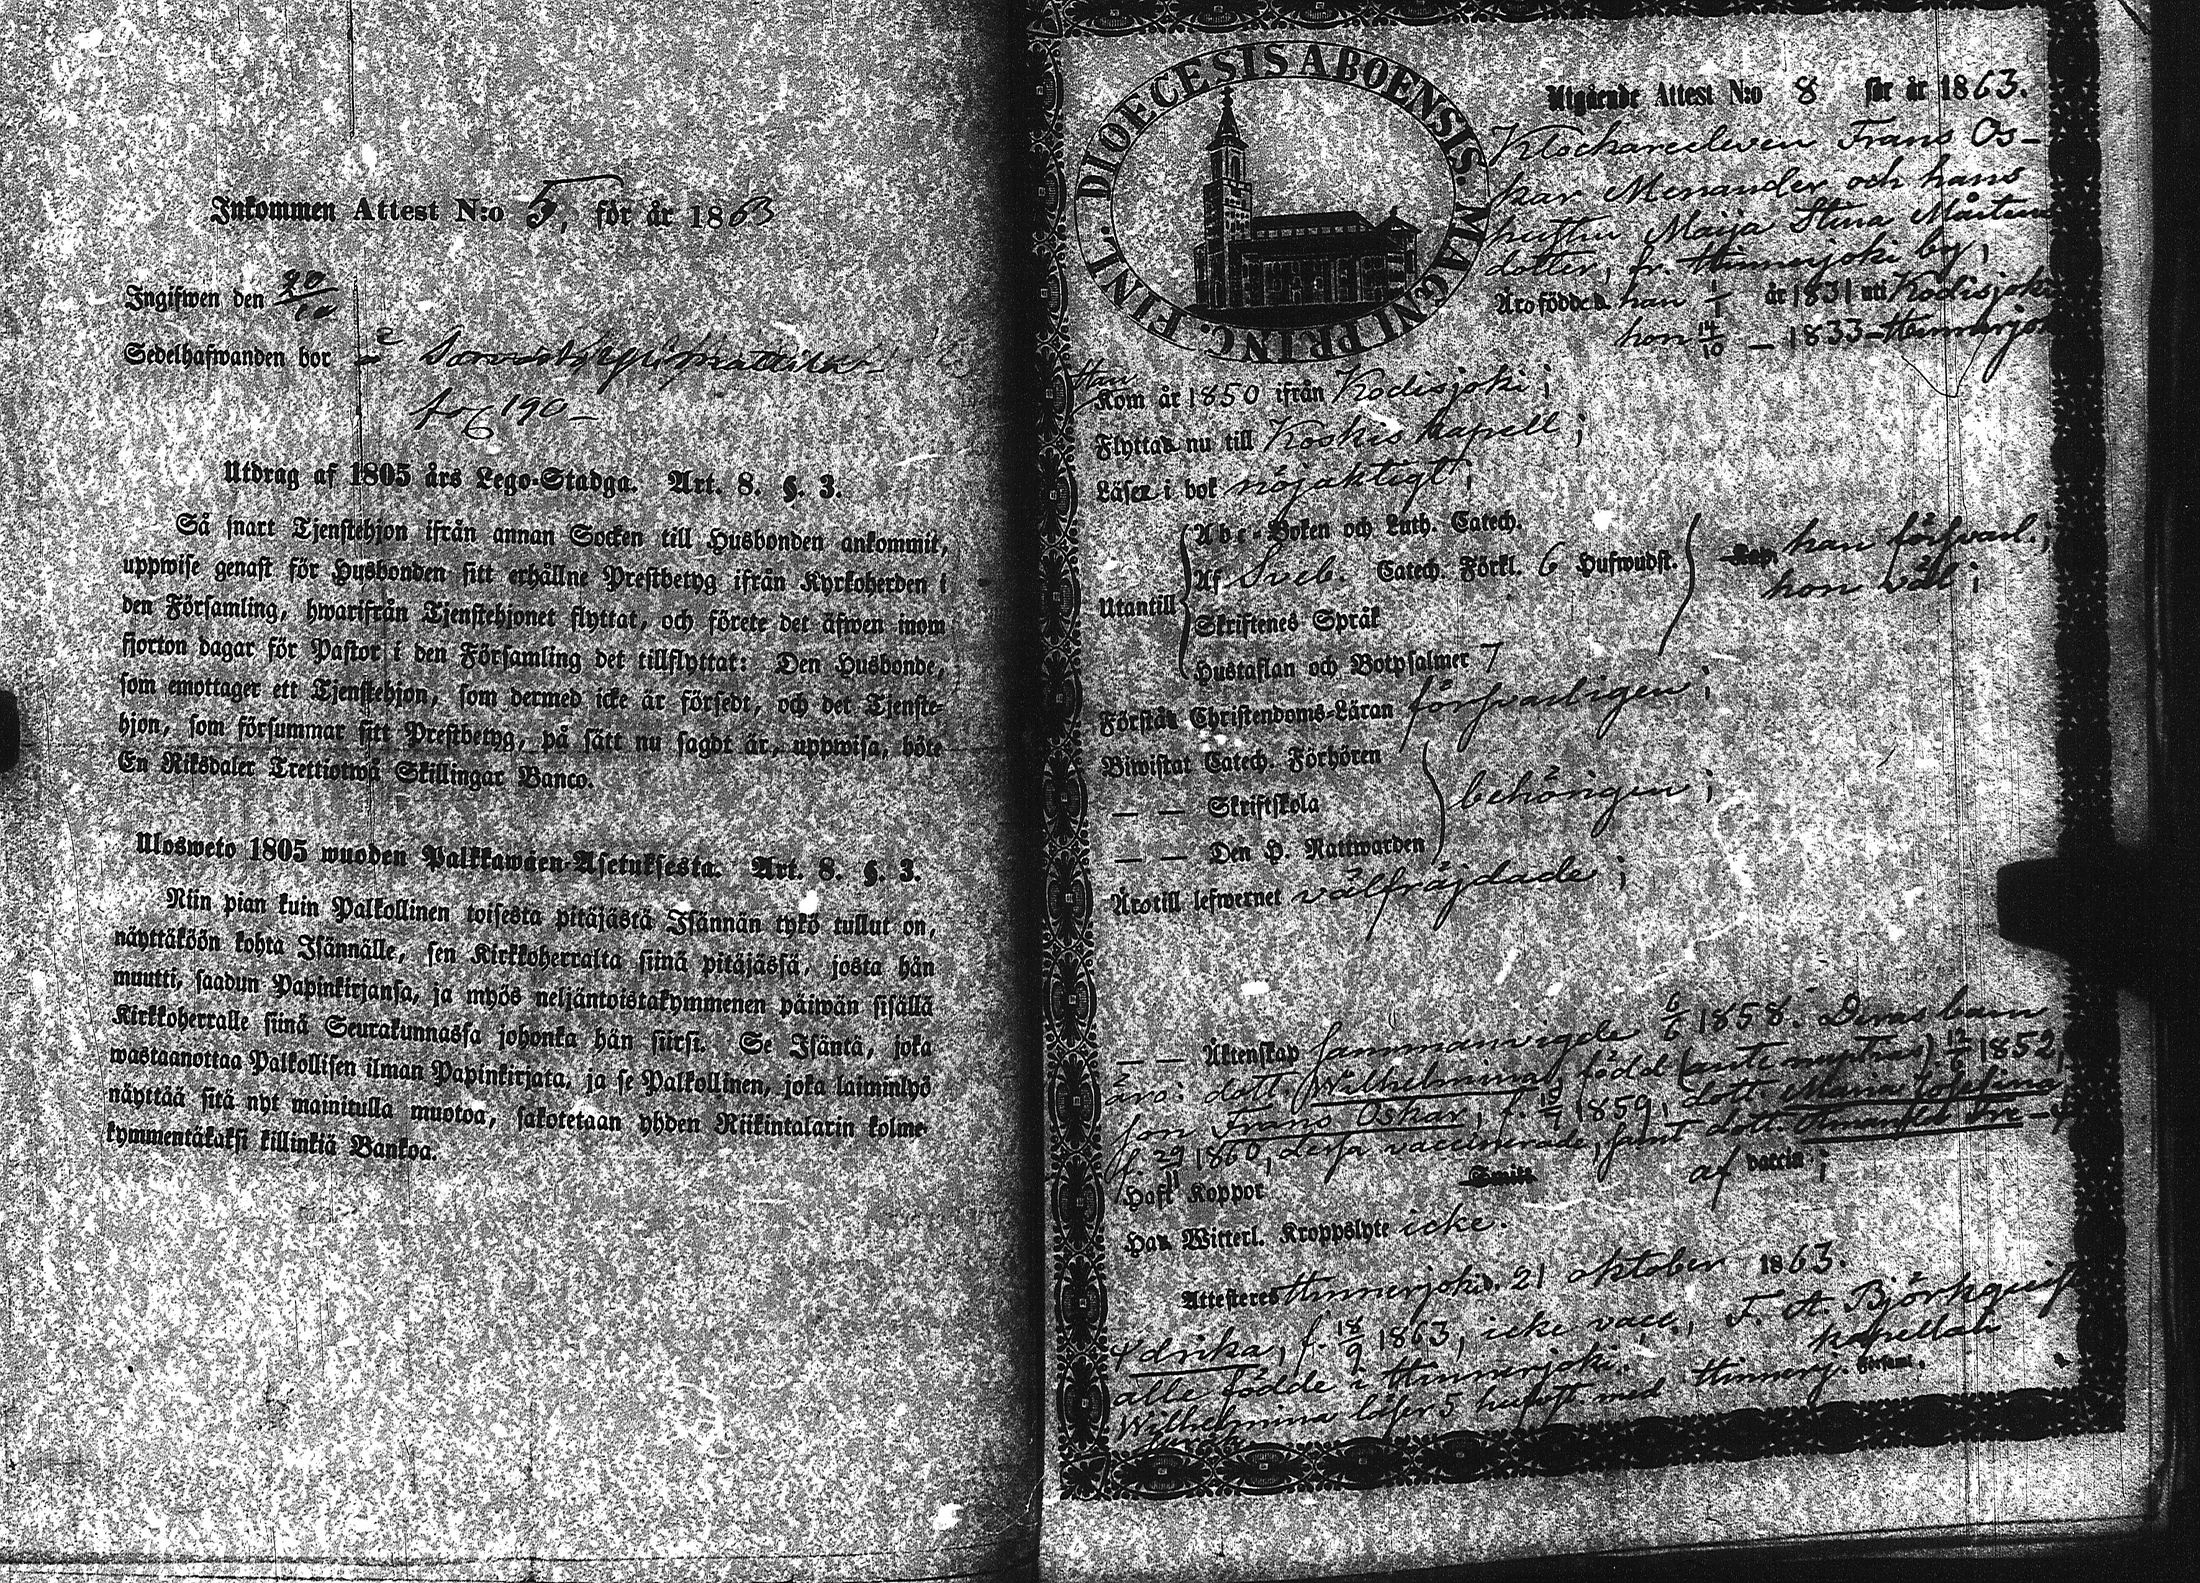 Inkommen Attest N:o 5, för år 1863
Ingifwen den 20/10
Sedelhafwanden bor
fog 190
Utdrag af 1805 års Lego-Stadga. Art. 8. §. 3.
Så snart Tjenstehjon ifrån annan Socken till Husbonden ankommit,
uppwise genast för Husbonden sitt erhållne Prestbetyg ifrån Kyrkoherden i
den Församling, hwarifrån Tjenstehjonet flyttat, och förete det äfwen inom
fjorton dagar för Pastor i den Församling det tillflyttat: Den Husbonde,
som emottager ett Tjenstehjon, som dermed icke är försedt, och det Tjenste-
hjon, som försummar sitt Prestbetyg, på sätt nu sagdt är, uppwisa, böte
En Riksdaler Trettiotwå Skillingar Banco.
Ulosweto 1805 wuoden Palkkawäen-Asetuksesta. Art. 8. §. 3.
Niin pian kuin Palkollinen toisesta pitäjästä Isännän tykö tullut on,
näyttäköön kohta Isännälle, sen Kirkkoherralta siinä pitäjässä, josta hän
muutti, saadun Papinkirjansa, ja myös neljäntoistakymmenen päiwän sisällä
Kirkkoherralle siinä Seurakunnassa johonka hän siirsi. Se Isäntä, joka
wastaanottaa Palkollisen ilman Papinkirjata, ja se Palkollinen, joka laiminlyö
näyttää sitä nyt mainitulla muotoa, sakotetaan yhden Riikintalarin kolme-
kymmentäkaksi killinkiä Bankoa.
FINL. DIOECESIS ABOENSIS. MAGNI PRINC.
Utgående Attest N:o 8 för år 1863.
Klockareeleven Frans Os-
kar Menander och hans
hustru Maija Stina Mårtens
dotter, fr. Hinnerjoki by,
Äro födde han 1/1 år 1831 uti Kodisjoki
hon 14/10 — 1833 - Hinnerjoki
Han
Kom år 1850 ifrån Kodisjoki;
Flytta nu till Koskis kapell;
Läser i bok nöjaktigt;
Abc-Boken och Luth. Catech.
Af Sveb. Catech. Förkl. 6 Hufwudst.
han försvarl.;
hon väl;
Utantill
Skriftenes Språk
Hustaflan och Botpsalmer 7
Förstå Christendoms-Läran försvarligen;
Biwistat Catech. Förhören
— — Skriftskola
behörigen;
— — Den H. Nattwarden
Äro till lefwernet välfräjdade;
— — Äktenskap sammanvigde 6/6 1858. Deras barn
äro: dott. Wilhelmina, född (ante nuptias) 12/6 1852,
son Frans Oskar, f. 1859, dott. Maria Josefina
f. 29/11 1860, dessa vaccinerade, samt dott. Amanda Fre-
Haft Koppor Smitt af vaccin;
Har Witterl. Kroppslyte icke.
Attesteres Hinnerjoki d. 21 oktober 1863.
drika, f. 18/9 1863, icke vacc., F. A. Björkqvist
alle födde i Hinnerjoki. kapellan
Wilhelmina läser 5 hufst. med Hinnerj. Församl.